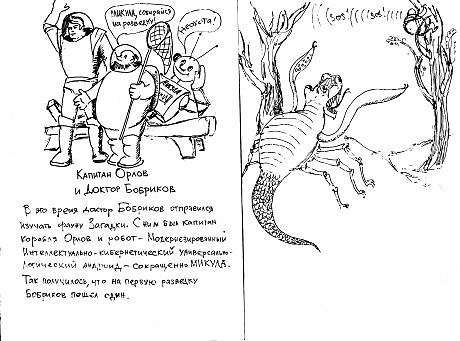 Микула, собирайся
на разведку!
Неохота!
Капитан Орлов
и Доктор Бобриков
В это время доктор Бобриков отправился
изучать фауну Загадки. С ним был капитан
корабля Орлов и робот - Модернизированный
Интеллектуально-кибернетический универсально-
логический андроид - сокращенно МИКУЛА.
Так получилось, что на первую разведку
Бобриков пошел один.
(sos!((((sos!((((